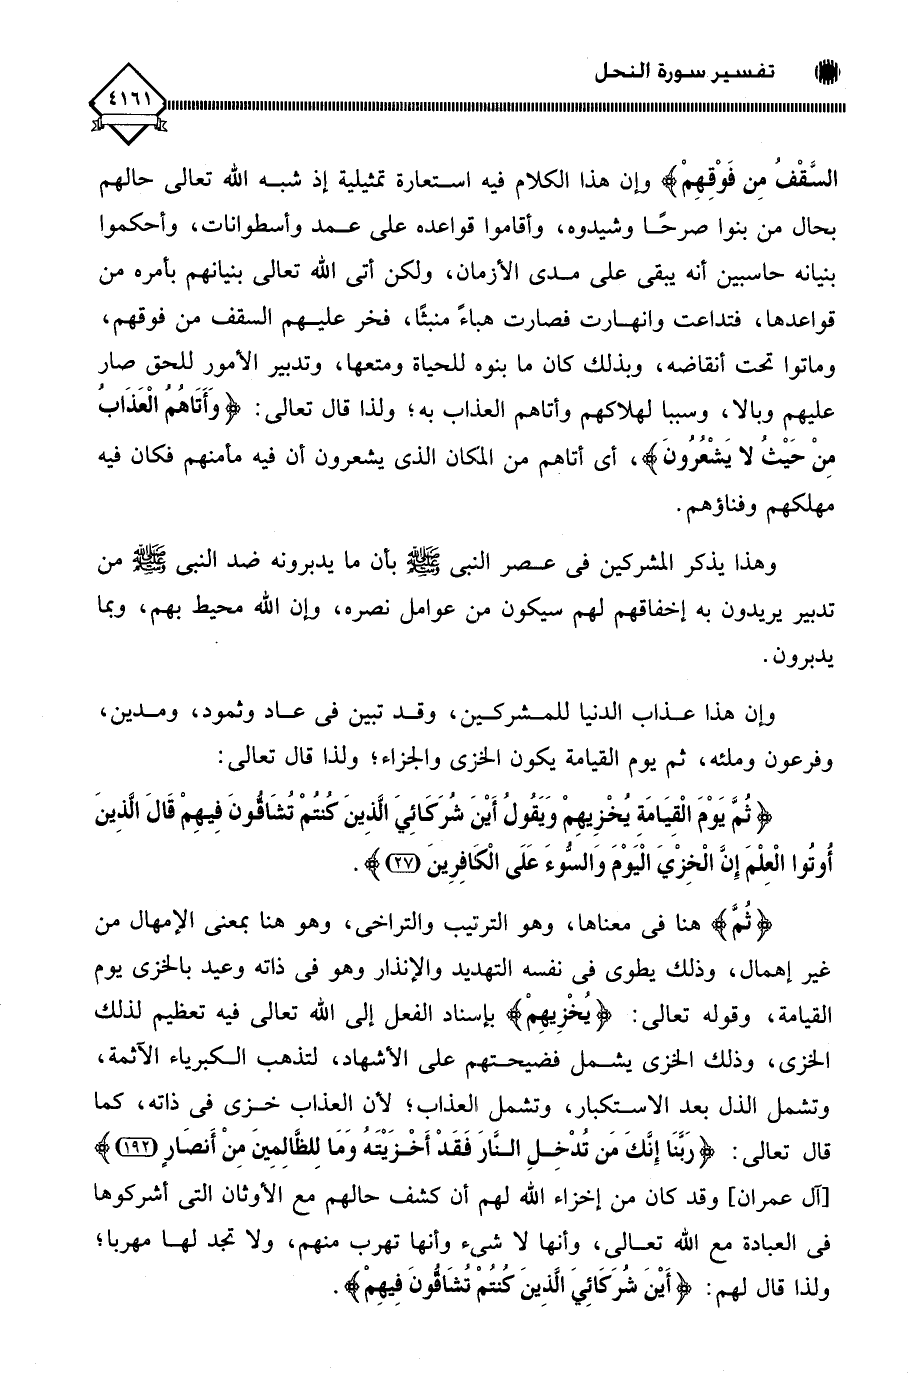 تفسير سورة النحل
٤١٦١
السَّقْفُ مِن فَوْقِهِمْ﴾ وإن هذا الكلام فيه استعارة تمثيلية إذ شبه الله تعالى حالهم
بحال من بنوا صرحًا وشيدوه، وأقاموا قواعده على عمد وأسطوانات، وأحكموا
بنيانه حاسبين أنه يبقى على مدى الأزمان، ولكن أتى الله تعالى بنيانهم بأمره من
قواعدها، فتداعت وانهارت فصارت هباءً منبثًا، فخر عليهم السقف من فوقهم،
وماتوا تحت أنقاضه، وبذلك كان ما بنوه للحياة ومتعها، وتدبير الأمور للحق صار
عليهم وبالا، وسببا لهلاكهم وأتاهم العذاب به؛ ولذا قال تعالى: ﴿وَأَتَاهُمُ الْعَذَابُ
مِنْ حَيْثُ لا يَشْعُرُونَ﴾، أى أتاهم من المكان الذى يشعرون أن فيه مأمنهم فكان فيه
مهلكهم وفناؤهم.
وهذا يذكر المشركين فى عصر النبى ﷺ بأن ما يدبرونه ضد النبى ﷺ من
تدبير يريدون به إخفاقهم لهم سيكون من عوامل نصره، وإن الله محيط بهم، وبما
يدبرون.
وإن هذا عذاب الدنيا للمشركين، وقد تبين فى عاد وثمود، ومدين،
وفرعون وملئه، ثم يوم القيامة يكون الخزى والجزاء؛ ولذا قال تعالى:
﴿ثُمَّ يَوْمَ الْقِيَامَةِ يُخْزِيهِمْ وَيَقُولُ أَيْنَ شُرَكَائِيَ الَّذِينَ كُنتُمْ تُشَاقُّونَ فِيهِمْ قَالَ الَّذِينَ
أُوتُوا الْعِلْمَ إِنَّ الْخِزْيَ الْيَوْمَ وَالسُّوءَ عَلَى الْكَافِرِينَ (٢٧)﴾.
﴿ثُمَّ﴾ هنا فى معناها، وهو الترتيب والتراخى، وهو هنا بمعنى الإمهال من
غير إهمال، وذلك يطوى فى نفسه التهديد والإنذار وهو فى ذاته وعيد بالخزى يوم
القيامة، وقوله تعالى: ﴿يُخْزِيهِمْ﴾ بإسناد الفعل إلى الله تعالى فيه تعظيم لذلك
الخزى، وذلك الخزى يشمل فضيحتهم على الأشهاد، لتذهب الكبرياء الآثمة،
وتشمل الذل بعد الاستكبار، وتشمل العذاب؛ لأن العذاب خزى فى ذاته، كما
قال تعالى: ﴿رَبَّنَا إِنَّكَ مَن تُدْخِلِ النَّارَ فَقَدْ أَخْزَيْتَهُ وَمَا لِلظَّالِمِينَ مِنْ أَنصَارٍ (١٩٢)﴾
[آل عمران] وقد كان من إخزاء الله لهم أن كشف حالهم مع الأوثان التى أشركوها
فى العبادة مع الله تعالى، وأنها لا شىء وأنها تهرب منهم، ولا تجد لها مهربا؛
ولذا قال لهم: ﴿أَيْنَ شُرَكَائِيَ الَّذِينَ كُنتُمْ تُشَاقُّونَ فِيهِمْ﴾.